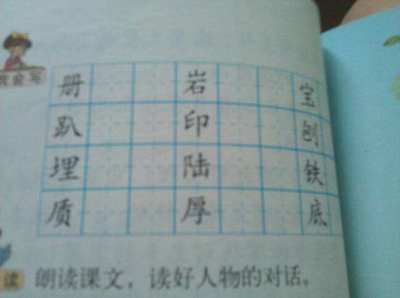 我会写
册 岩 宝
趴 印 刨
埋 陆 铁
质 厚 底
读 朗读课文，读好人物的对话。